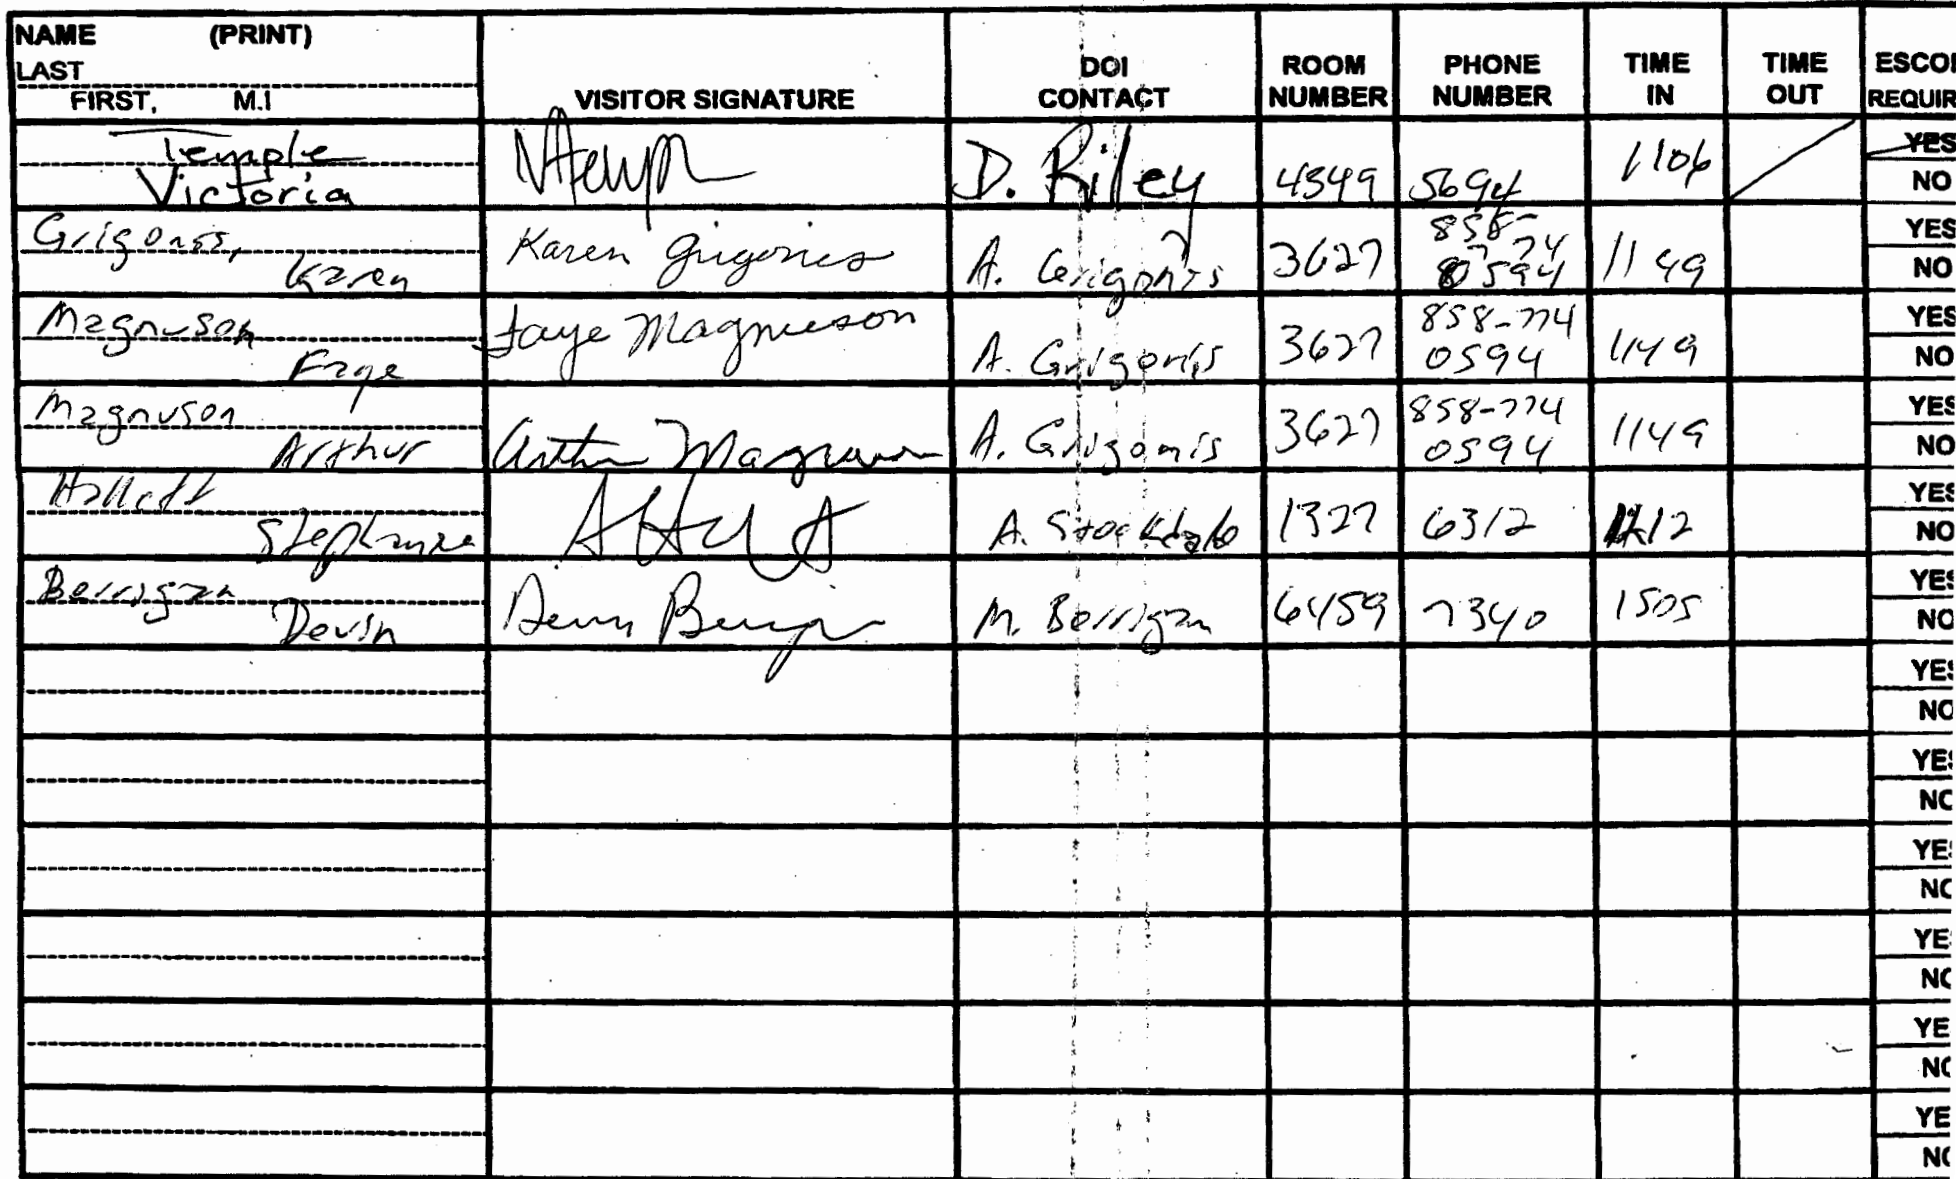 NAME (PRINT)
LAST
FIRST, M.I
VISITOR SIGNATURE
DOI
CONTACT
ROOM
NUMBER
PHONE
NUMBER
TIME
IN
TIME
OUT
ESCO
REQUIR
Temple
Victoria
D. Riley
4349
5694
1106
YES
NO
Grigonis,
Karen
Karen Grigonis
A. Grigonis
3627
858-
774
0594
1149
YES
NO
Magnuson
Faye
Faye Magnuson
A. Grigonis
3627
858-774
0594
1149
YES
NO
Magnuson
Arthur
Arthur Magnuson
A. Grigonis
3627
858-774
0594
1149
YES
NO
Hallett
Stephanie
A. Stockdale
1327
6312
1212
YES
NO
Berrigan
Devin
Devin Berrigan
M. Berrigan
6459
7340
1505
YES
NO
YES
NO
YES
NO
YE
NO
YE
NO
YE
NO
YE
NO